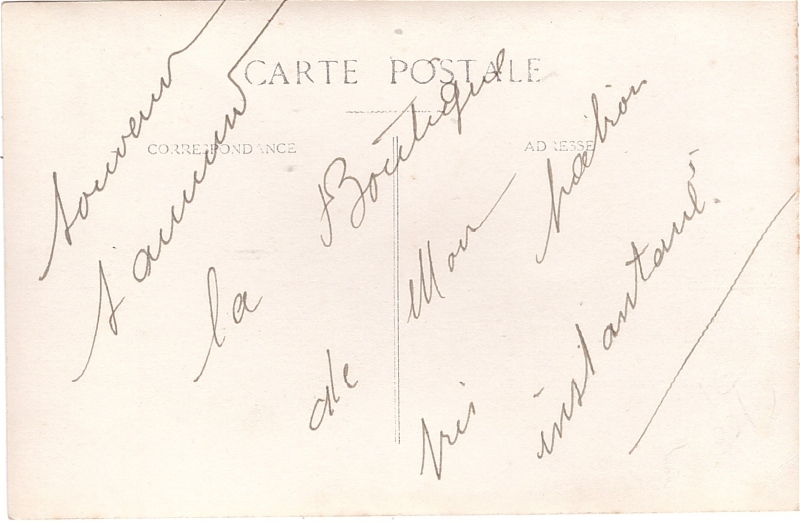 CARTE POSTALE
CORRESPONDANCE
ADRESSE
souvenir
saumur
la Boutique
de Mon patron
pris instantané.